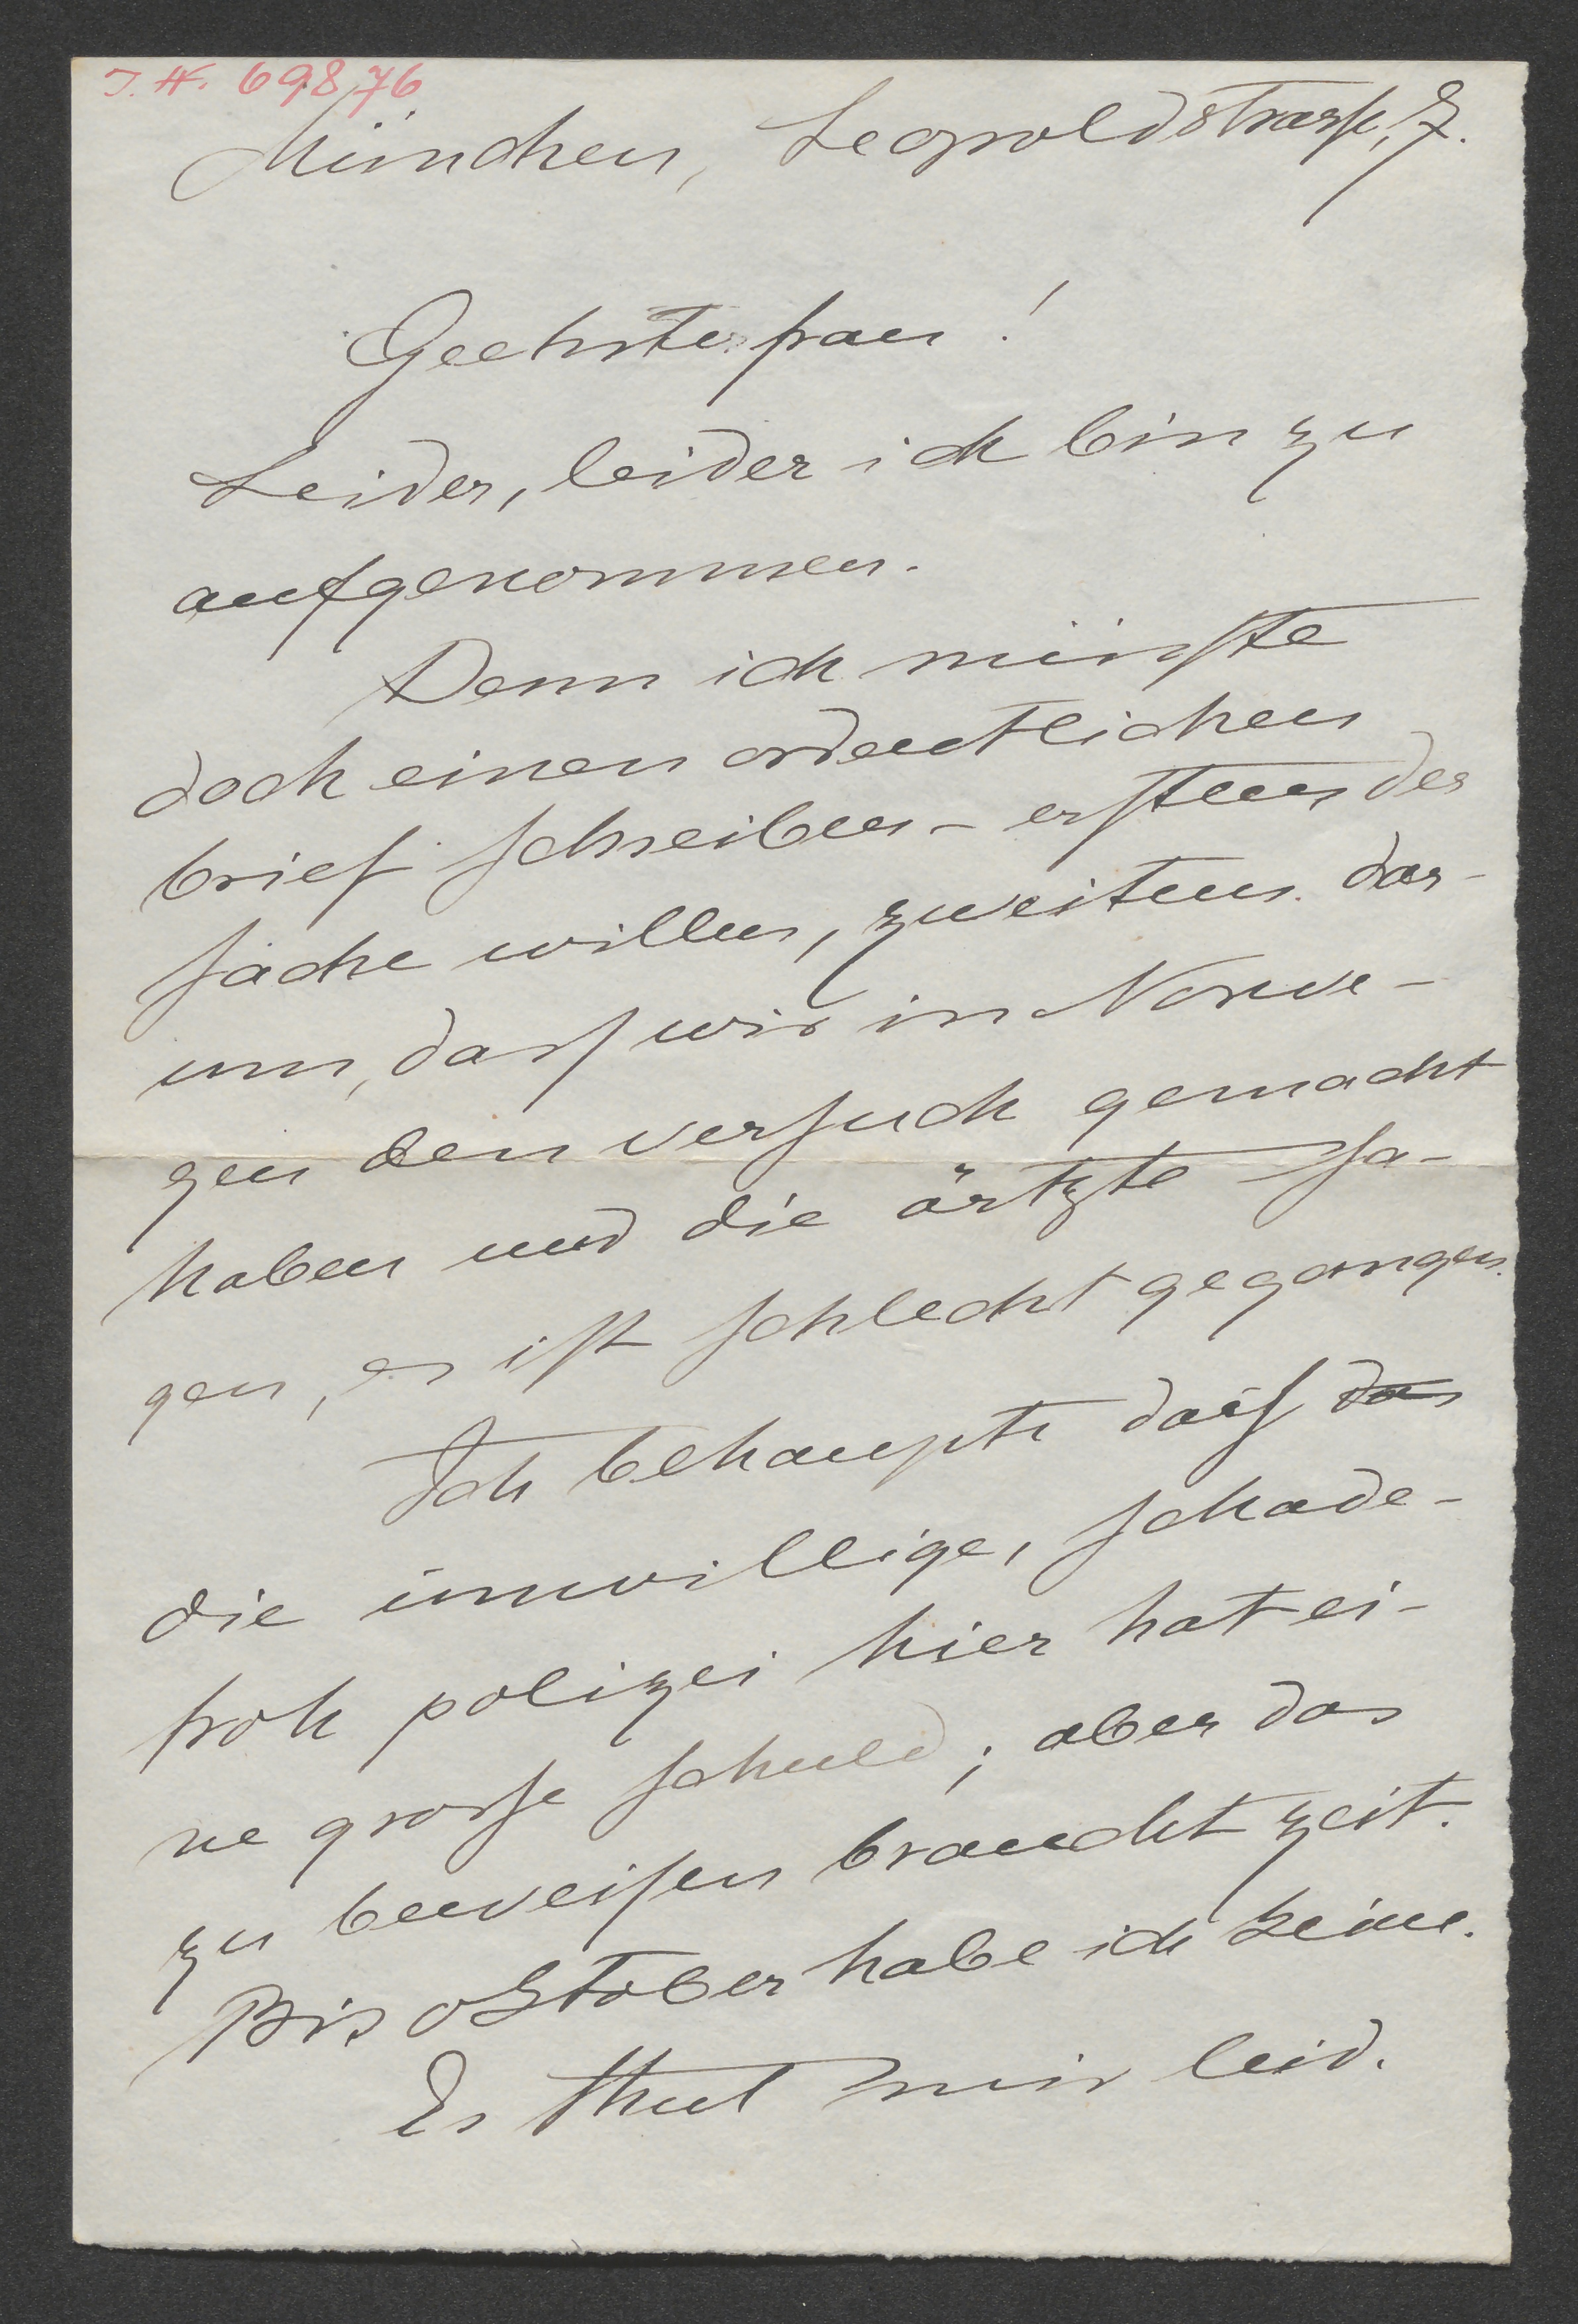 J.N. 69876
München, Leopoldstrasse, 7.
Geehrte frau!
Leider, leider ich bin zu
aufgenommen.
Denn ich müsste
doch einen ordentlichen
brief schreiben – erstens der
sache willen, zweitens dar-
um, dass wir in Norwe-
gen den versuch gemacht
haben und die ärtzte sa-
gen, es ist schlecht gegangen.
Ich behaupte dass das
die unwillige, schade-
froh polizei hier hat ei-
ne grosse schuld; aber das
zu beweisen braucht zeit.
Bis oktober habe ich keine.
Es thut mir leid.